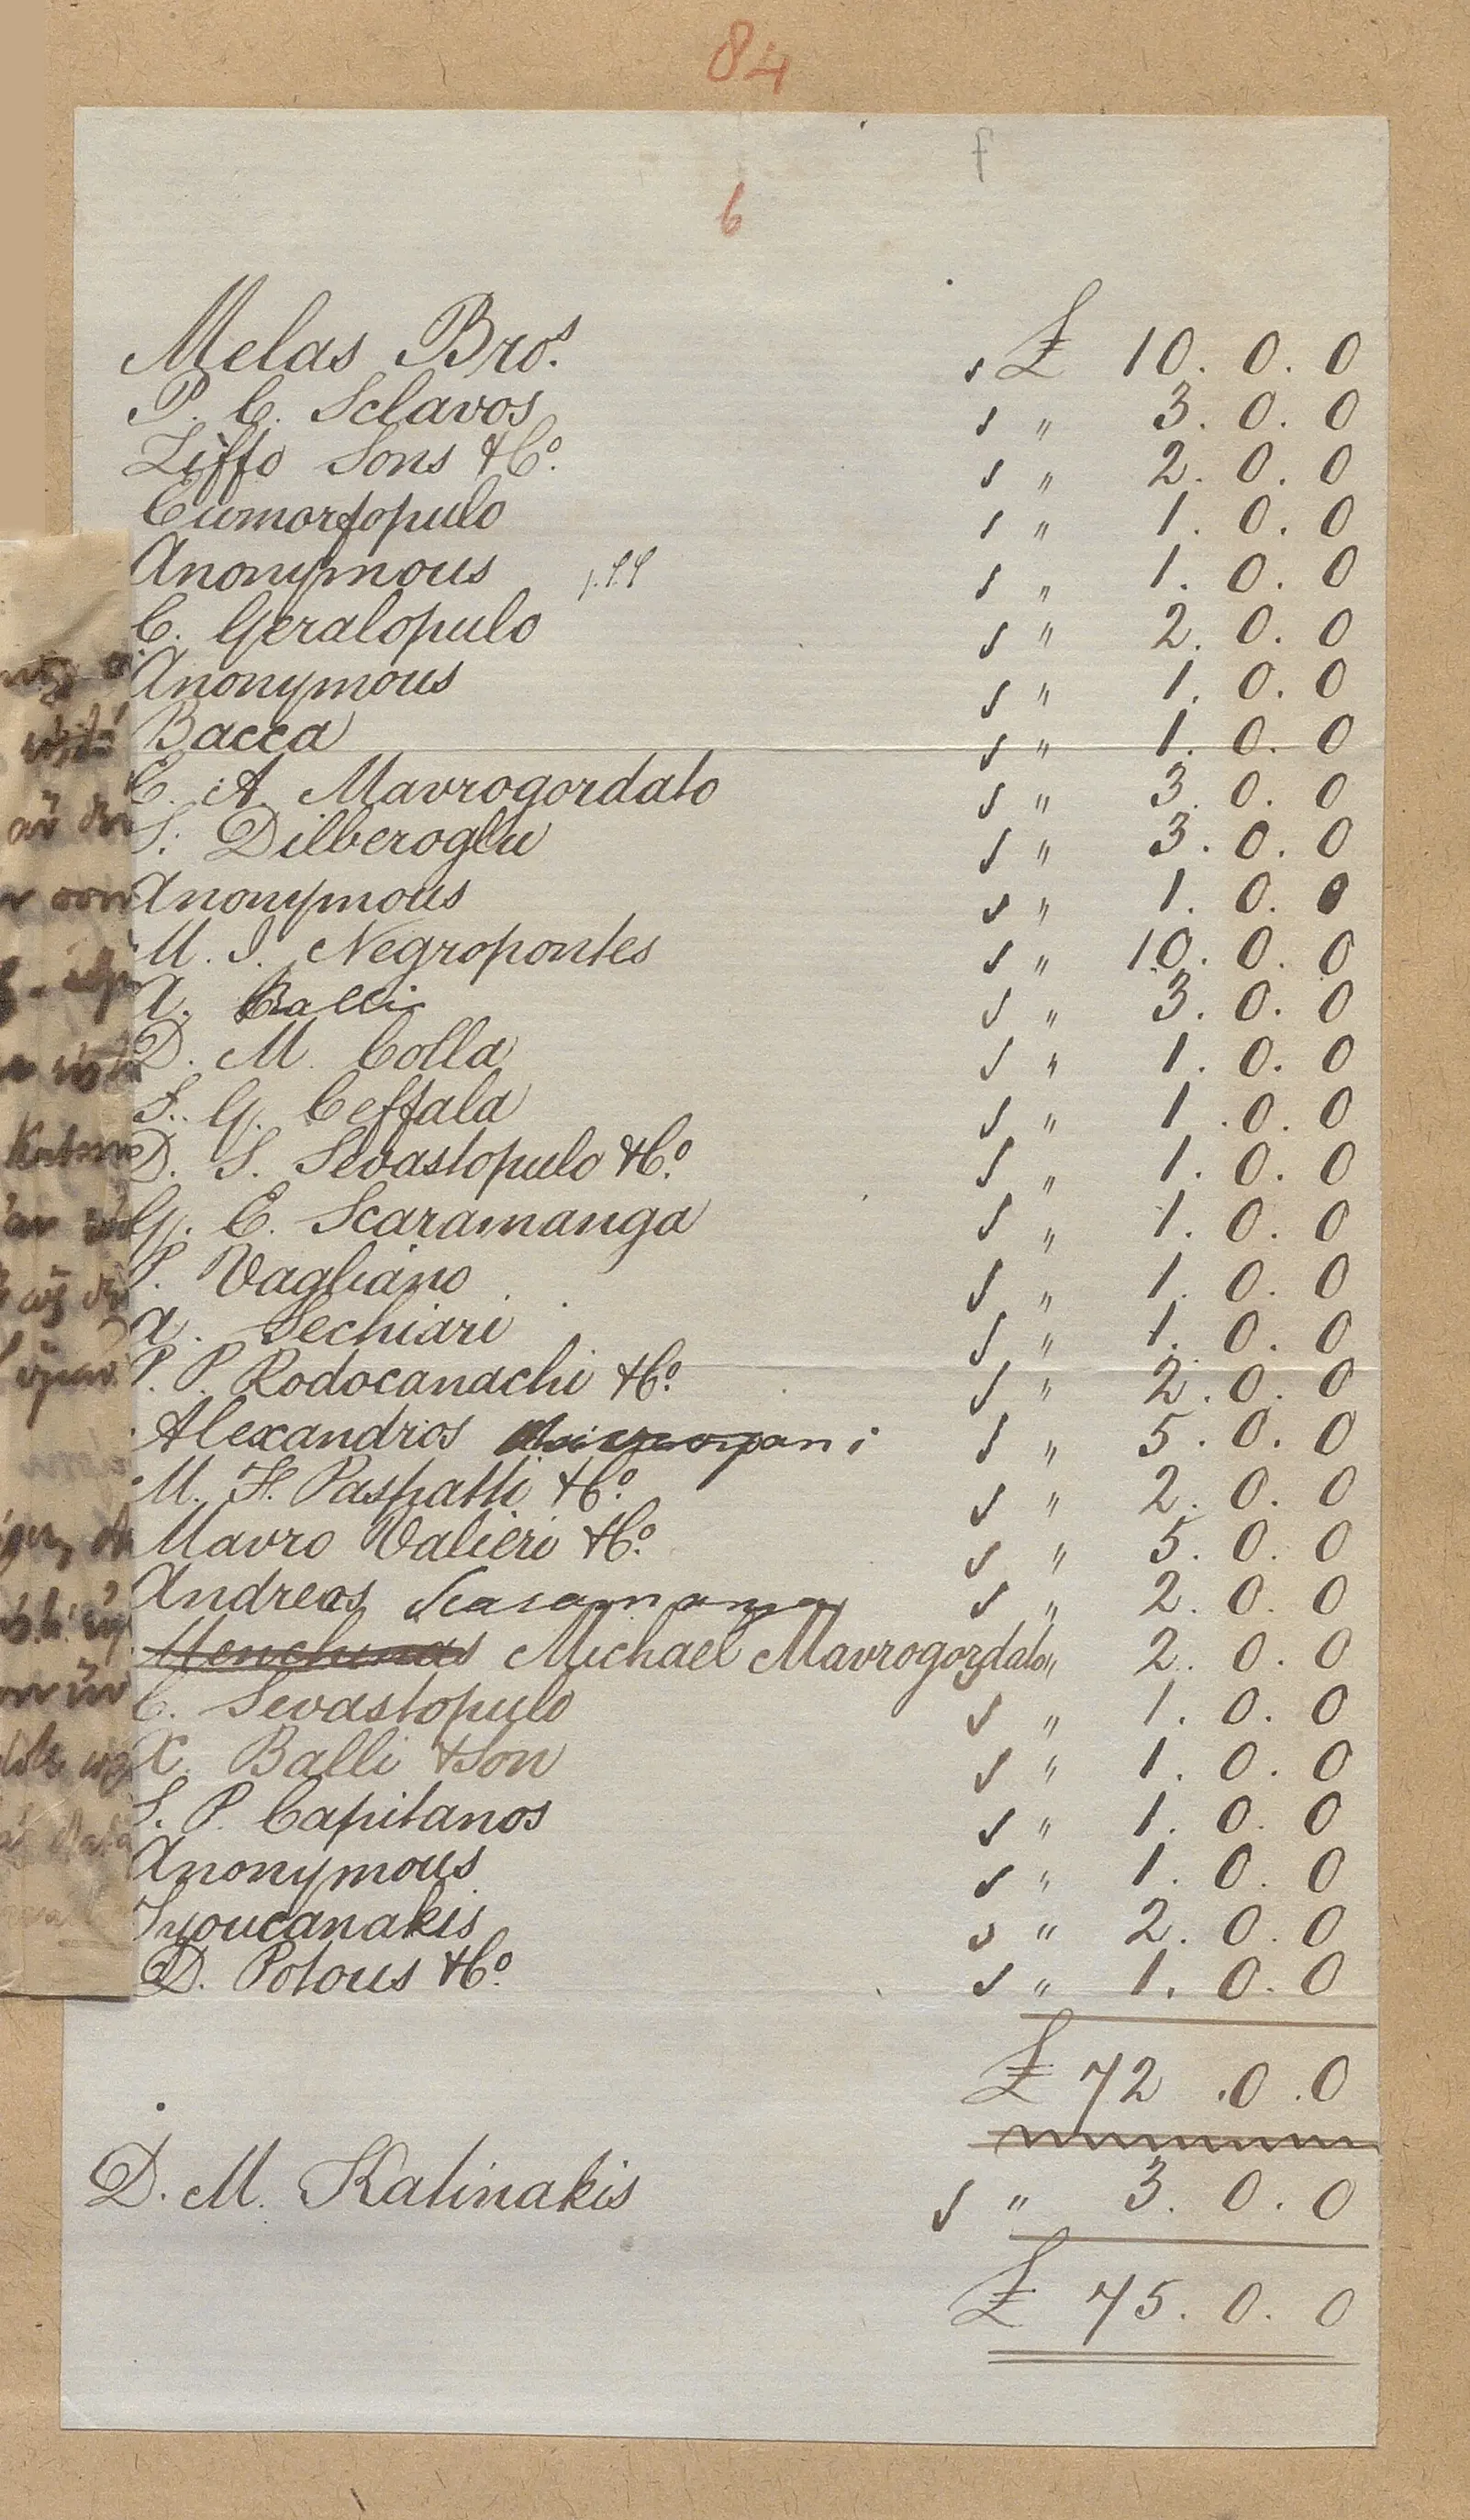 84
f
6
Melas Bros. £ 10. 0. 0
P. C. Sclavos " 3. 0. 0
Ziffo Sons & Co. " 2. 0. 0
Eumorfopulo " 1. 0. 0
Anonymous " 1. 0. 0
C. Geralopulo " 2. 0. 0
Anonymous " 1. 0. 0
Bacca " 1. 0. 0
C. A Mavrogordato " 3. 0. 0
S. Dilberoglu " 3. 0. 0
Anonymous " 1. 0. 0
M. J. Negropontes " 10. 0. 0
A. Ralli " 3. 0. 0
D. M. Colla " 1. 0. 0
S. G. Ceffala " 1. 0. 0
D. S. Sevastopulo & Co. " 1. 0. 0
G. E. Scaramanga " 1. 0. 0
P. Vagliano " 1. 0. 0
A. Sechiari " 1. 0. 0
P. P. Rodocanachi & Co. " 2. 0. 0
Alexandros " 5. 0. 0
M. H. Paspatti & Co. " 2. 0. 0
Mavro Valieri & Co. " 5. 0. 0
Andreas Scaramanga " 2. 0. 0
Michael Mavrogordato " 2. 0. 0
C. Sevastopulo " 1. 0. 0
X. Balli & Son " 1. 0. 0
S. P. Capitanos " 1. 0. 0
Anonymous " 1. 0. 0
Syoucanakis " 2. 0. 0
D. Potous & Co. " 1. 0. 0
£ 72. 0. 0
D. M. Kalinakis " 3. 0. 0
£ 75. 0. 0